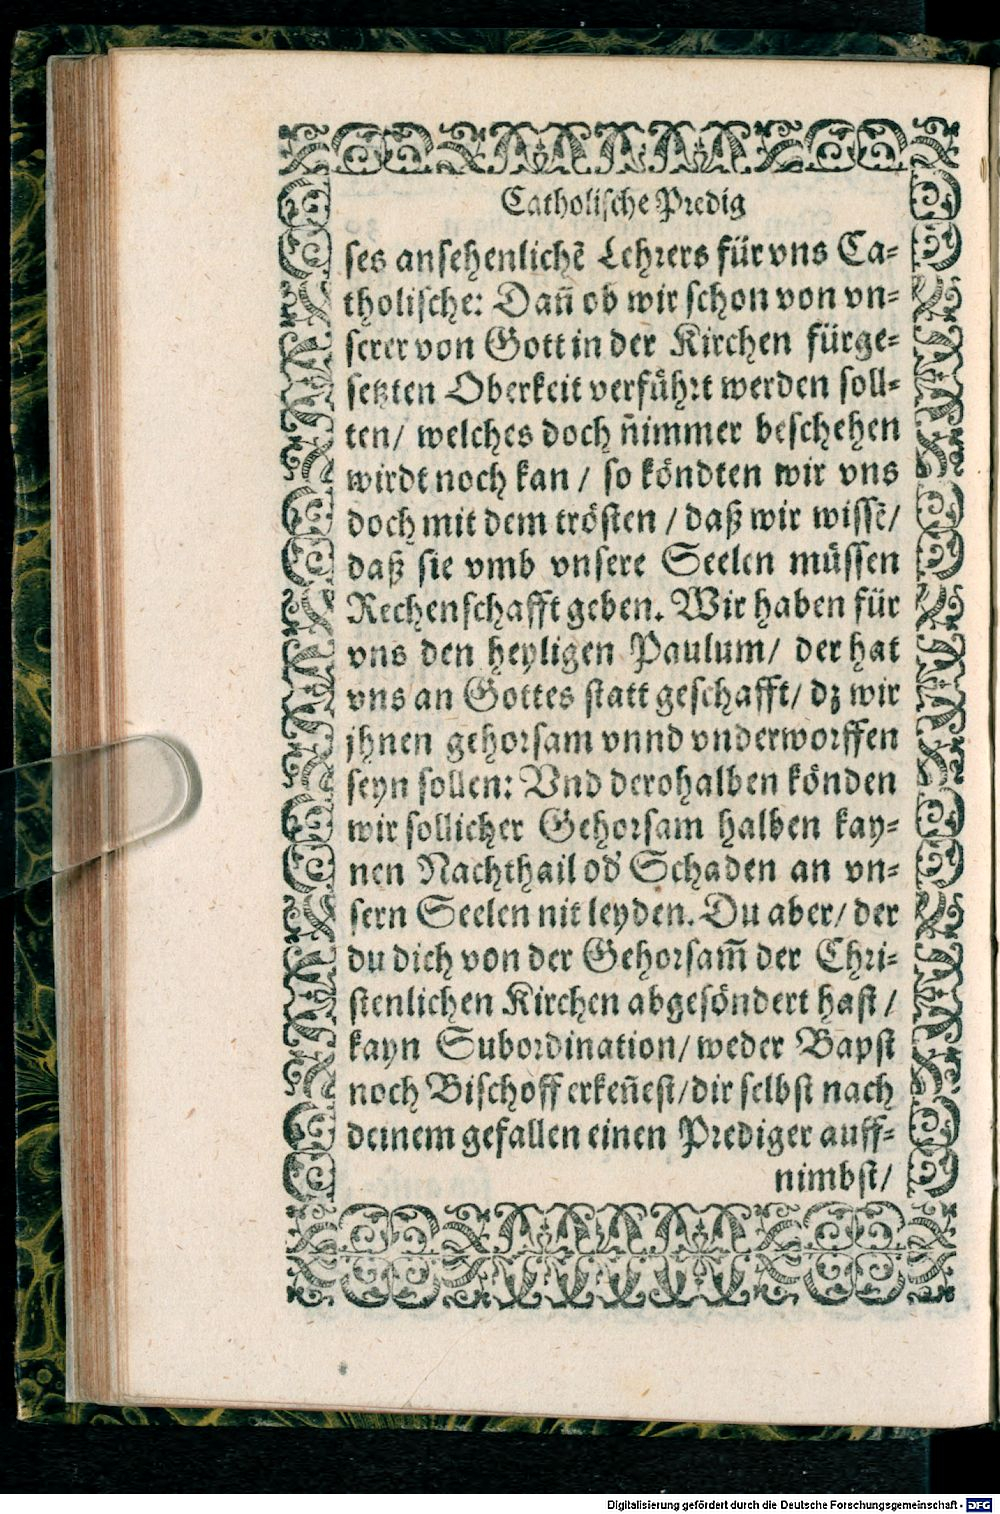 Catholische Predig
ses ansehenlichẽ Lehrers für vns Ca-
tholische: Dañ ob wir schon von vn-
serer von Gott in der Kirchen fürge-
setzten Oberkeit verführt werden soll-
ten/ welches doch ñimmer beschehen
wirdt noch kan / so köndten wir vns
doch mit dem trösten / daß wir wissẽ/
daß sie vmb vnsere Seelen müssen
Rechenschafft geben. Wir haben für
vns den heyligen Paulum/ der hat
vns an Gottes statt geschafft/ dz wir
jhnen gehorsam vnnd vnderworffen
seyn sollen: Vnd derohalben könden
wir sollicher Gehorsam halben kay-
nen Nachthail od' Schaden an vn-
sern Seelen nit leyden. Du aber/ der
du dich von der Gehorsam̃ der Chri-
stenlichen Kirchen abgesöndert hast /
kayn Subordination/ weder Bapst
noch Bischoff erkeñest/ dir selbst nach
deinem gefallen einen Prediger auff-
nimbst/
Digitalisierung gefördert durch die Deutsche Forschungsgemeinschaft - DFG